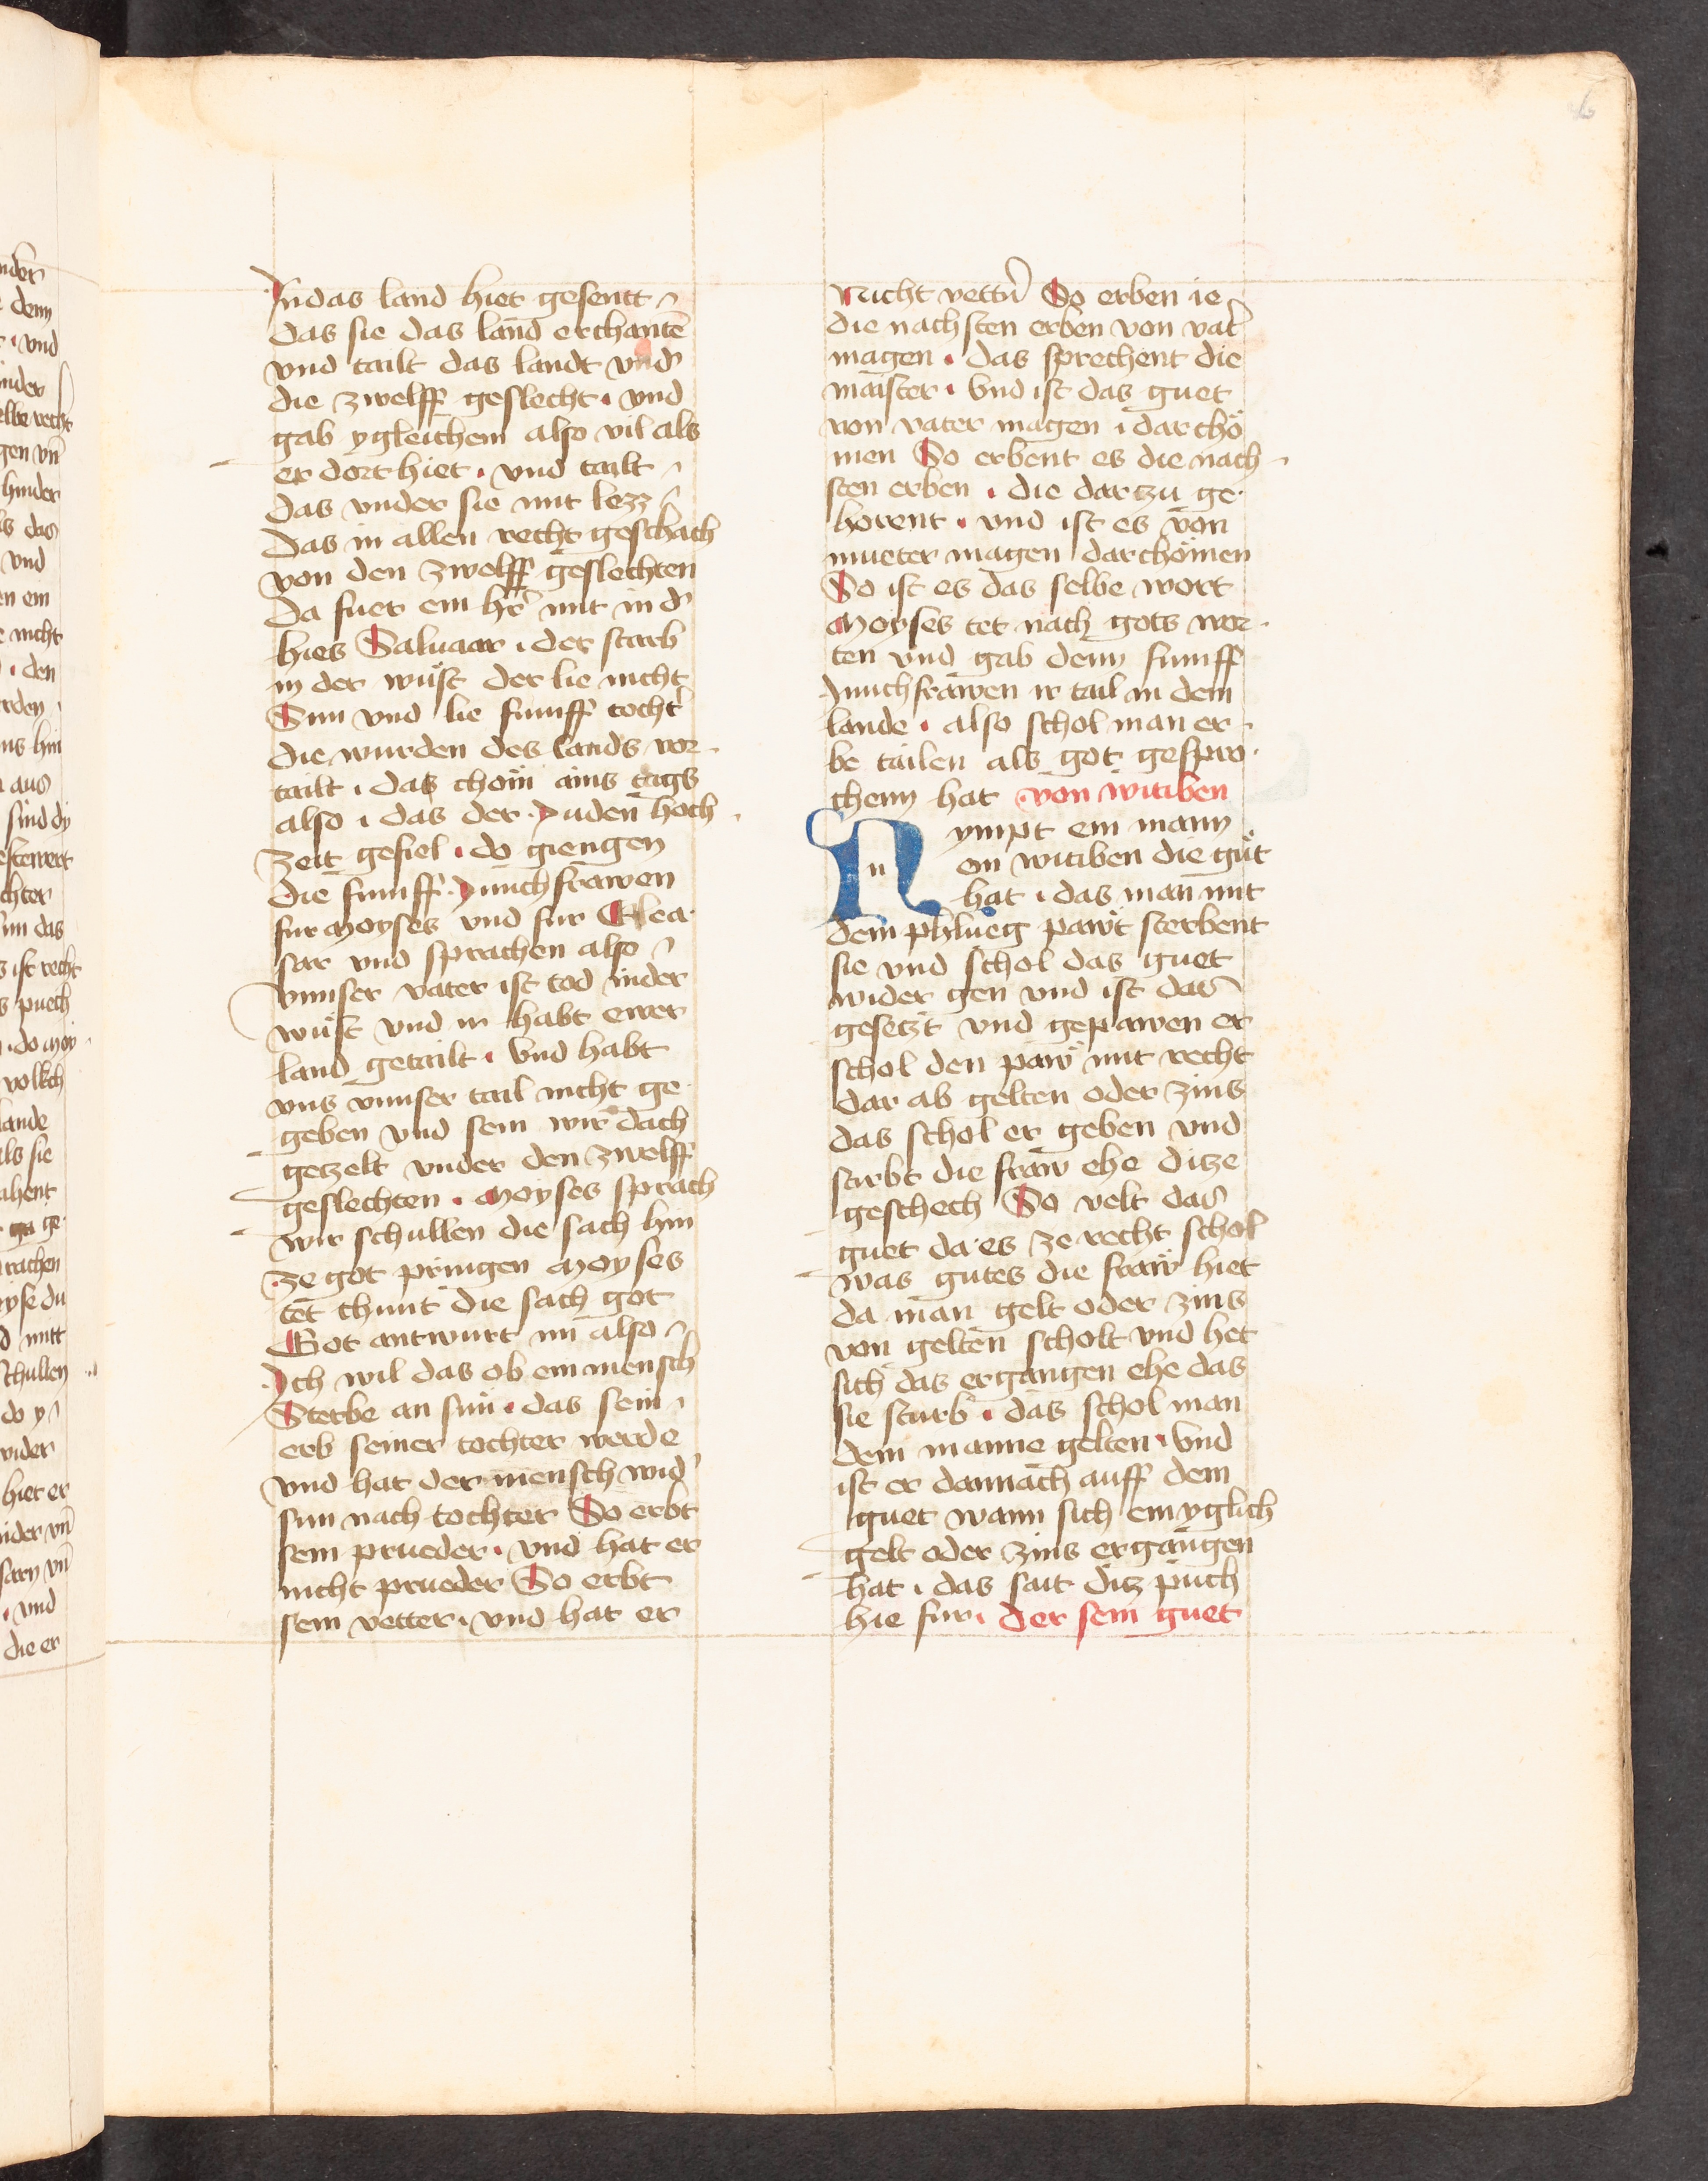 6
Jn das land hiet gesentt
das sie das land erchantē
vnd tailt das landt vnd̕
die zwelff geslecht · vnd
gab ygleichem also vil als
er dort hiet · vnd tailt
das vnder sie mit lezz
das in allen recht geschach
von den zwelff geslechten
Da fuer ein hr̄ mit in d̕
hies Saluaar · der starb
in der wüst der lie nicht
Sun vnd lie fumff tocht̕
die wurden des lands vor
tailt · das chom ains tags
also · das der Juden hoch
zeit gefiel · do giengen
die fumff Junchfrawen
fur Moyses vnd fur Elea
sar vnd sprachen also
vnnser vater ist tod inder
wüst vnd ir habt ewer
land getailt · vnd habt
vns vnnser tail nicht ge
geben vnd sein wir dach
getzelt vnder den zwelff
geslechten · Moyses sprach
wir schullen die sach hin
ze got pringen Moyses
tet chunt die sach got
Got antwurt im also
Jch wil das ob ein mensch
Sterbe an sun · das sein
erb seiner tochter werde
vnd hat der mensch wid̕
sun nach tochter So erbt
sein prueder · vnd hat er
nicht prueder So erbt
sein vetter · vnd hat er
Nicht vettn̄ So erben ie
die nachsten erben von vat̕
magen · das sprechent die
maister · vnd ist das guet
von vater magen · darchö
men So erbent es die nach
sten erben · die dar zu ge
horent · vnd ist es von
mueter magen darchömen
So ist es das selbe wort
Moyses tet nach gots wor
ten vnd gab denn fumff
Junchfrawen ir tail in dem
lande · also schol man er
be tailen als got gespro
chenn hat von witiben
Nympt ein mann
ein witiben die güt
hat · das man mit
dem phlueg pawt sterbent
sie vnd schol das guet
wider gen vnd ist das
gesetzt vnd gepawen er
schol den paw mit recht
dar ab gelten oder zins
das schol er geben vnd
stirbt die fraw ehe ditze
geschech So velt das
guet da es ze recht schol
was gutes die fraw hiet
da man gelt oder zins
von gelten scholt vnd het
sich das ergangen ehe das
sie starb · das schol man
dem manne gelten · vnd
ist er dannach auff dem
guet wann sich ein yglich
gelt oder zins ergangen
hat · das sait ditz puch
hie fur · der sein guet